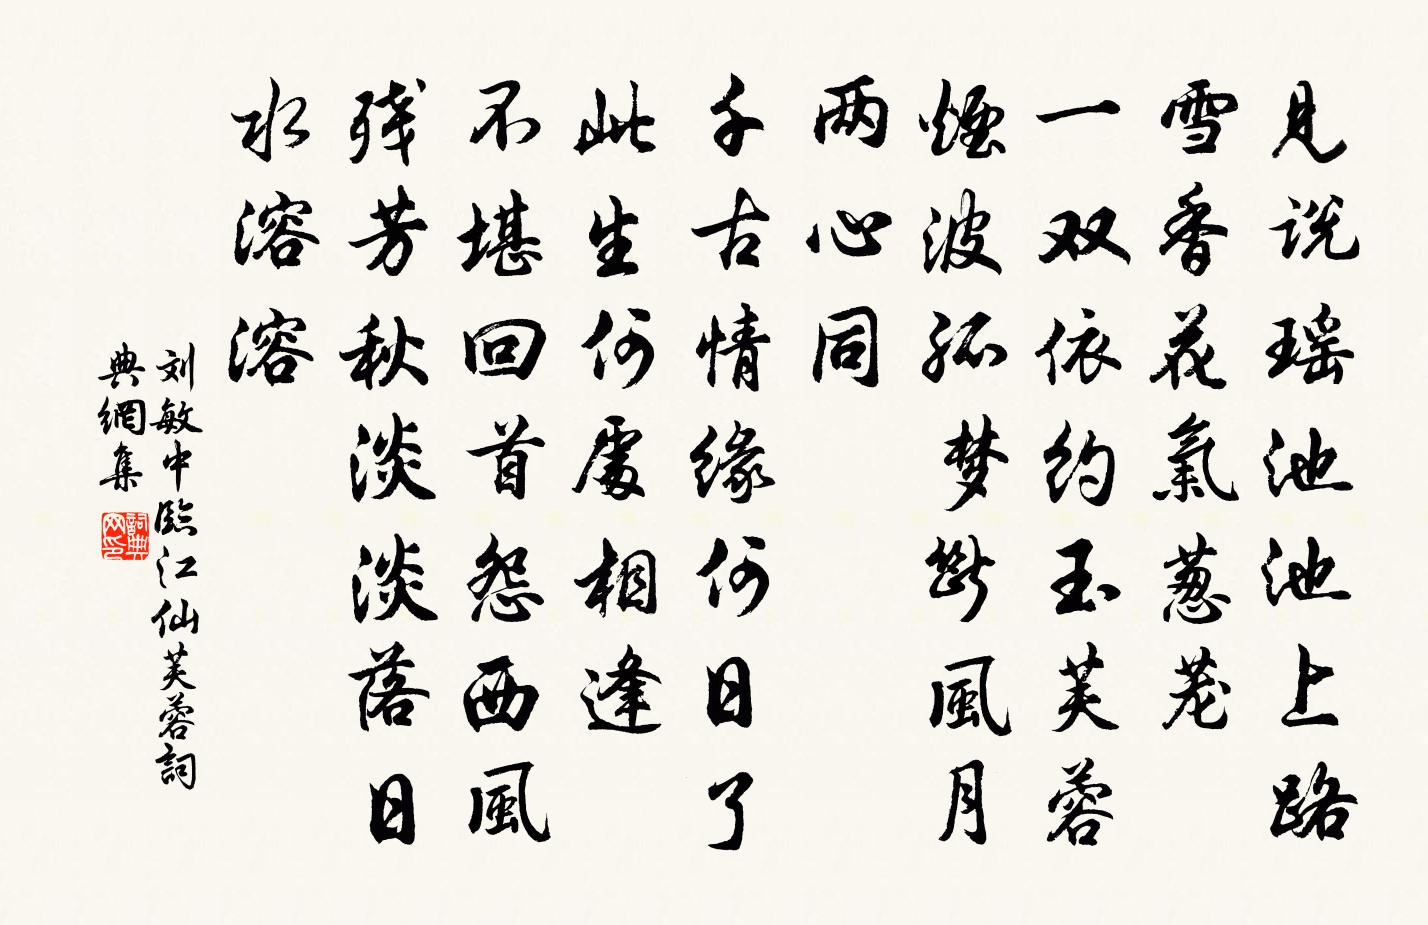 見说瑶池池上路
雪香花氣葱茏
一双依约玉芙蓉
煙波孤梦断風月
两心同
千古情缘何日了
此生何處相逢
不堪回首怨西風
残芳秋淡淡落日
水溶溶
刘敏中臨江仙芙蓉詞
典網集
詞典网印